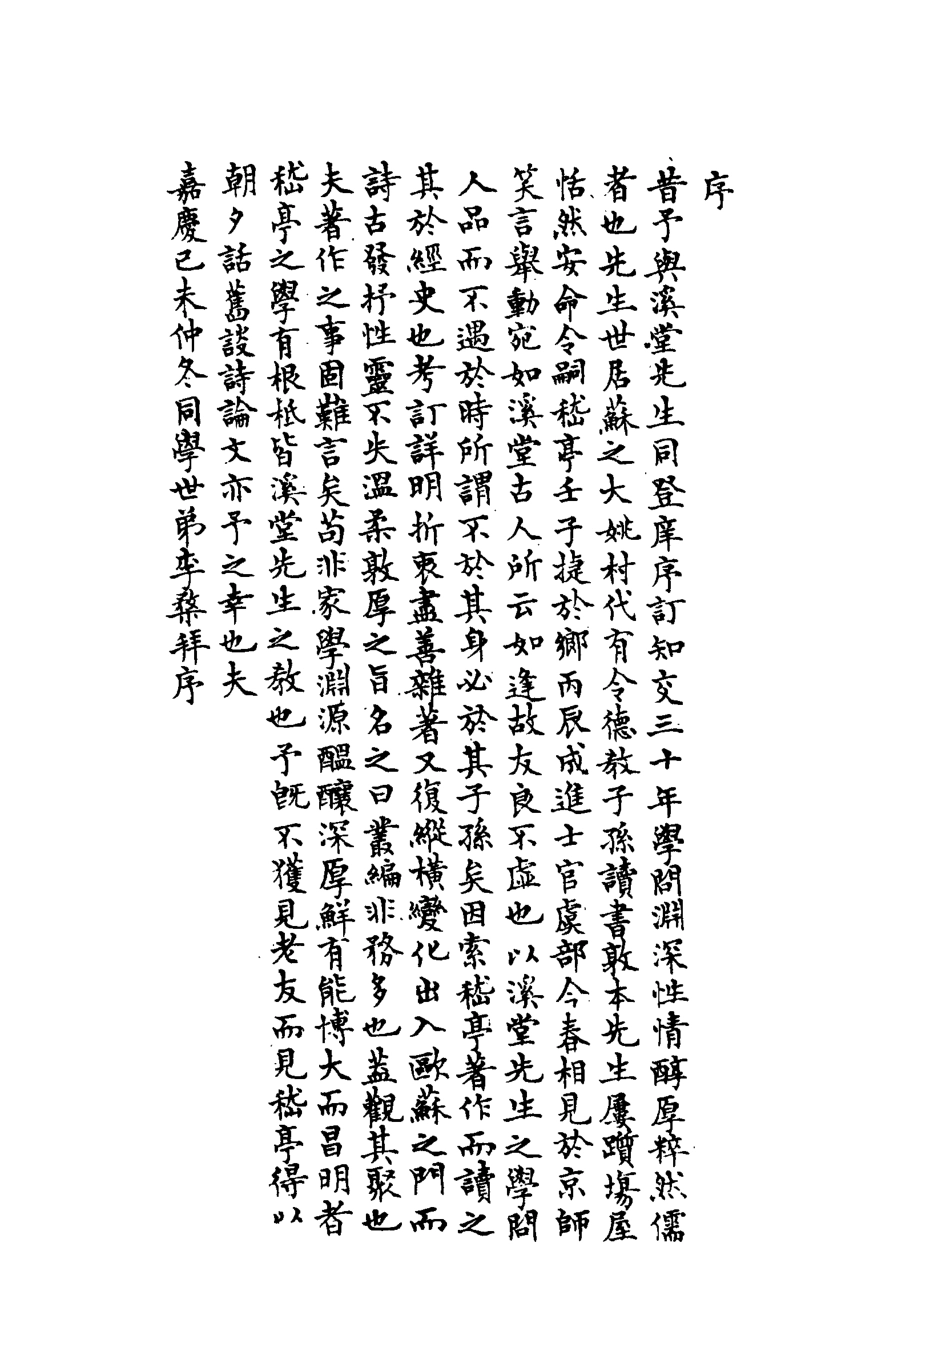 序
昔予與溪堂先生同登庠序訂知交三十年學問淵深性情醇厚粹然儒
者也先生世居蘇之大姚村代有令德教子孫讀書敦本先生屢躓場屋
恬然安命令嗣嵇亭壬子捷於鄉丙辰成進士官虞部今春相見於京師
笑言舉動宛如溪堂古人所云如逢故友良不虛也以溪堂先生之學問
人品而不遇於時所謂不於其身必於其子孫矣因索嵇亭著作而讀之
其於經史也考訂詳明折衷盡善雜著又復縱橫變化出入歐蘇之門而
詩古發抒性靈不失溫柔敦厚之旨名之曰叢編非務多也蓋觀其聚也
夫著作之事固難言矣苟非家學淵源醞釀深厚鮮有能博大而昌明者
嵇亭之學有根柢皆溪堂先生之教也予旣不獲見老友而見嵇亭得以
朝夕話舊談詩論文亦予之幸也夫
嘉慶己未仲冬同學世弟李棨拜序